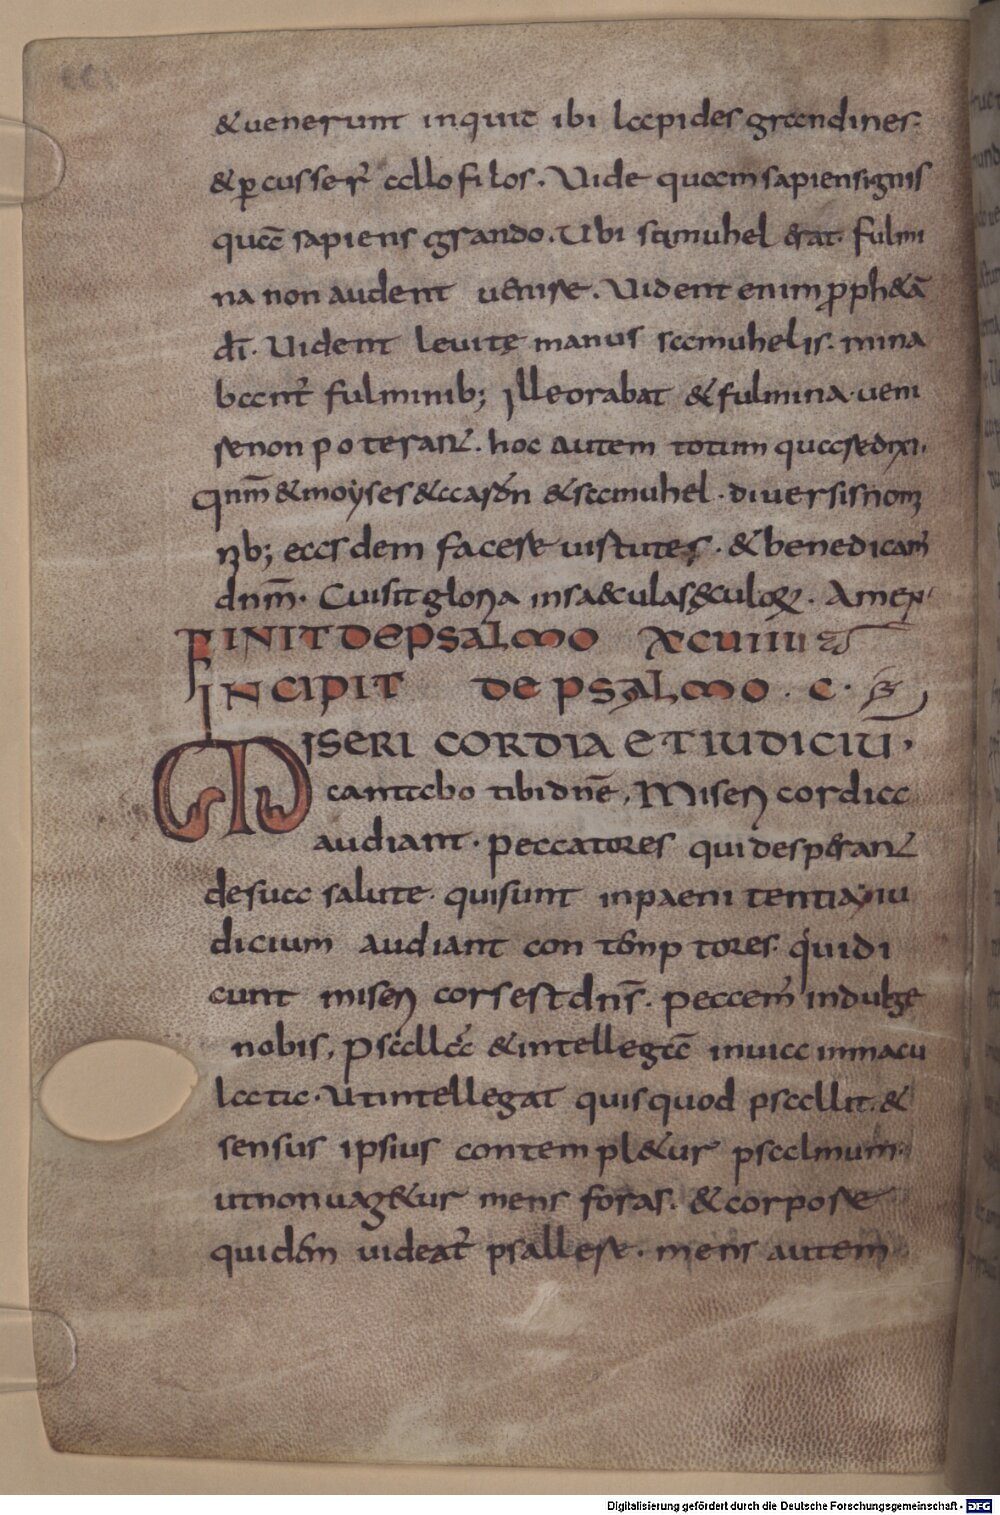 &uenerunt inquit ibi lapides grandines.
&ꝑcusser̄ allofilos. Uide quam sapiens ignis
quā sapiens grando. Ubi samuhel erat. fulmi
na non audent uenire. Uident enim ꝓph&ā
dī. Uident leuitę manus samuhelis. mina
bant̄ fulminib; Ille orabat &fulmina ueni
re non poterant. hoc autem totum quare dixi.
qnm̄ &moyses &aaron &samuhel. diuersis nomi
nib; eas dem facere uirtutes. &benedicam̄
dnm̄. Cui sit gloria in saecula saeculoꝝ. Amen
FINIT DE PSALMO XCVIIII
INCIPIT DE PSALMO. C.
MISERICORDIA ET IUDICIŪ.
cantabo tibi dnē. Misericordia
audiant. peccatores qui desperant
de sua salute. qui sunt in paenitentia iu
dicium audiant contemptores. qui di
cunt misericors est dn̄s. peccem̄ indulge
nobis. Psallā &intellegā in uia immacu
lata. Ut intellegat quis quod psallit. &
sensus ipsius contempl&ur psalmum.
ut non uag&ur mens foras. &corpore
quidem uideat̄ psallere. mens autem
Digitalisierung gefördert durch die Deutsche Forschungsgemeinschaft - DFG